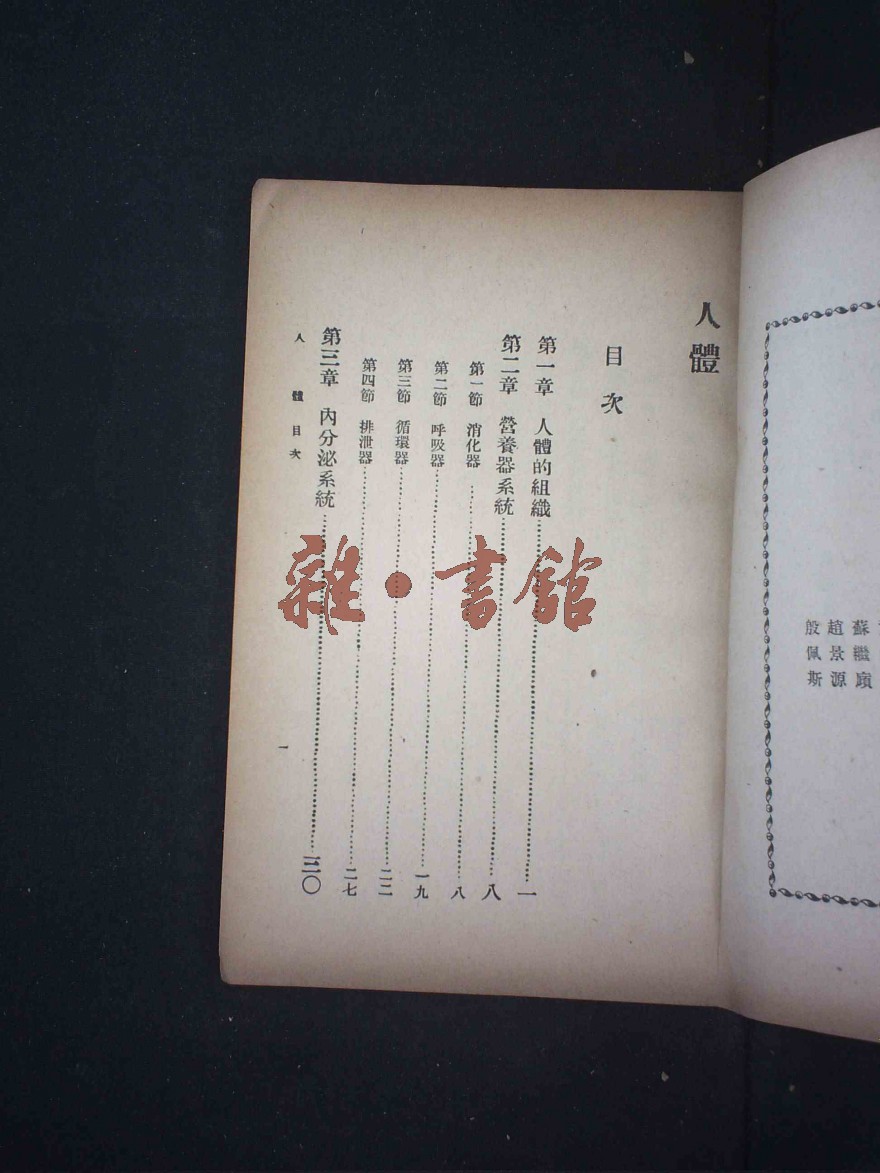 蘇繼廎
趙景源
殷佩斯
人體
目次
第一章 人體的組織……一
第二章 營養器系統……八
第一節 消化器……八
第二節 呼吸器……一九
第三節 循環器……二二
第四節 排泄器……二七
第三章 內分泌系統……三〇
人體 目次
一
雜·書館